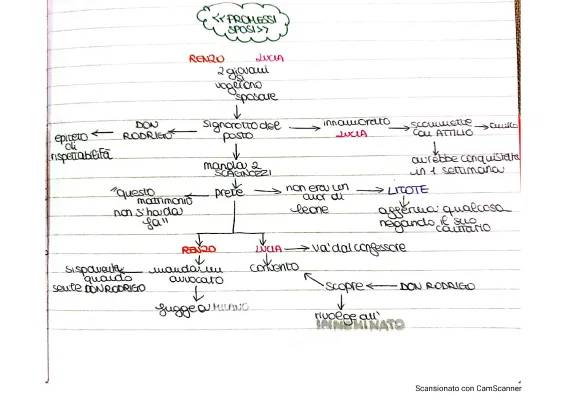 <<PROMESSI
SPOSI>>
RENZO LUCIA
2 giovani
si
vogliono
sposare
epiteto di rispettabilità ← DON RODRIGO ← signorotto del posto → innamorato LUCIA → scommette con ATTILIO →
avrebbe conquistata
in 1 settimana
manda 2
"questo matrimonio non s'ha da fa'" ← prete → non era un cuor di leone → LITOTE
afferma qualcosa
negando il suo
contrario
RENZO LUCIA → va dal confessore
si spaventa quando sente DON RODRIGO ← mandar un avvocato
convento
scopre ← DON RODRIGO
fugge a MILANO
rivolge all'
INNOMINATO
Scansionato con CamScanner